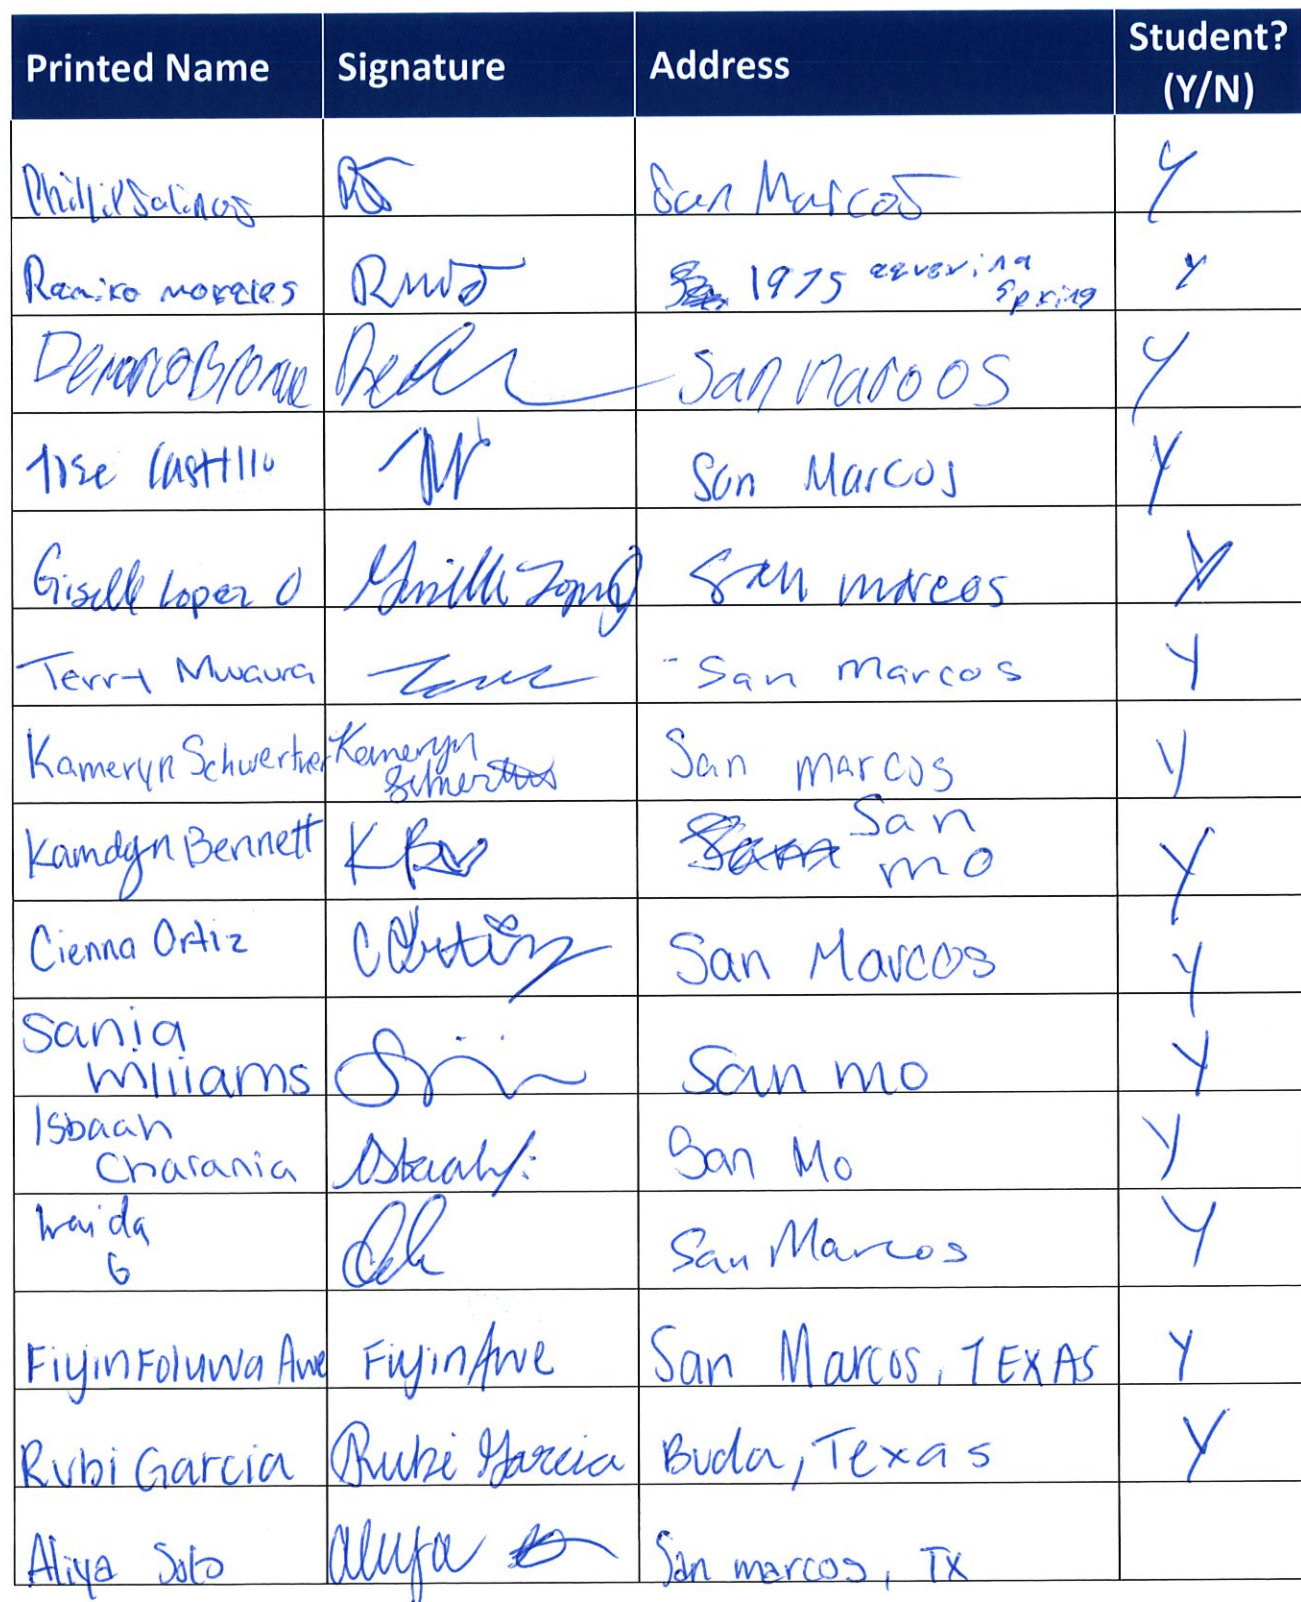 Printed Name Signature Address Student? (Y/N)
Phillip Salinas San Marcos Y
Ramiro morales 1975 spring Y
Demarco San Marcos Y
Jose Castillo San Marcos Y
Giselle Lopez O Giselle Lopez San marcos Y
Terry Mwaura San Marcos Y
Kameryn Schwertner Kameryn Schwertner San marcos Y
Kamdyn Bennett KB San mo Y
Cienna Ortiz COrtiz San Marcos Y
Sania Williams San mo Y
Isbaah Charania Isbaah San Mo Y
Iraida G San Marcos Y
Fiyinfoluwa Awe Fiyin Awe San Marcos, TEXAS Y
Rubi Garcia Rubi Garcia Buda, Texas Y
Aliya Soto Aliya San marcos, TX